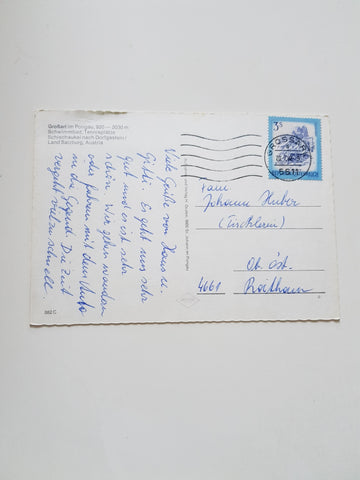 Großarl im Pongau, 920 — 2030 m
Schwimmbad, Tennisplätze
Schischaukel nach Dorfgastein
Land Salzburg, Austria
Viele Grüße von Hans u.
Gitti. Es geht uns sehr
gut und es ist sehr
schön. Wir gehen wandern
oder fahren mit dem Auto
in die Gegend. Die Zeit
vergeht viel zu schnell.
382 C
3 S
Fam
Johann Huber
Ob. Öst.
4661 Roitham